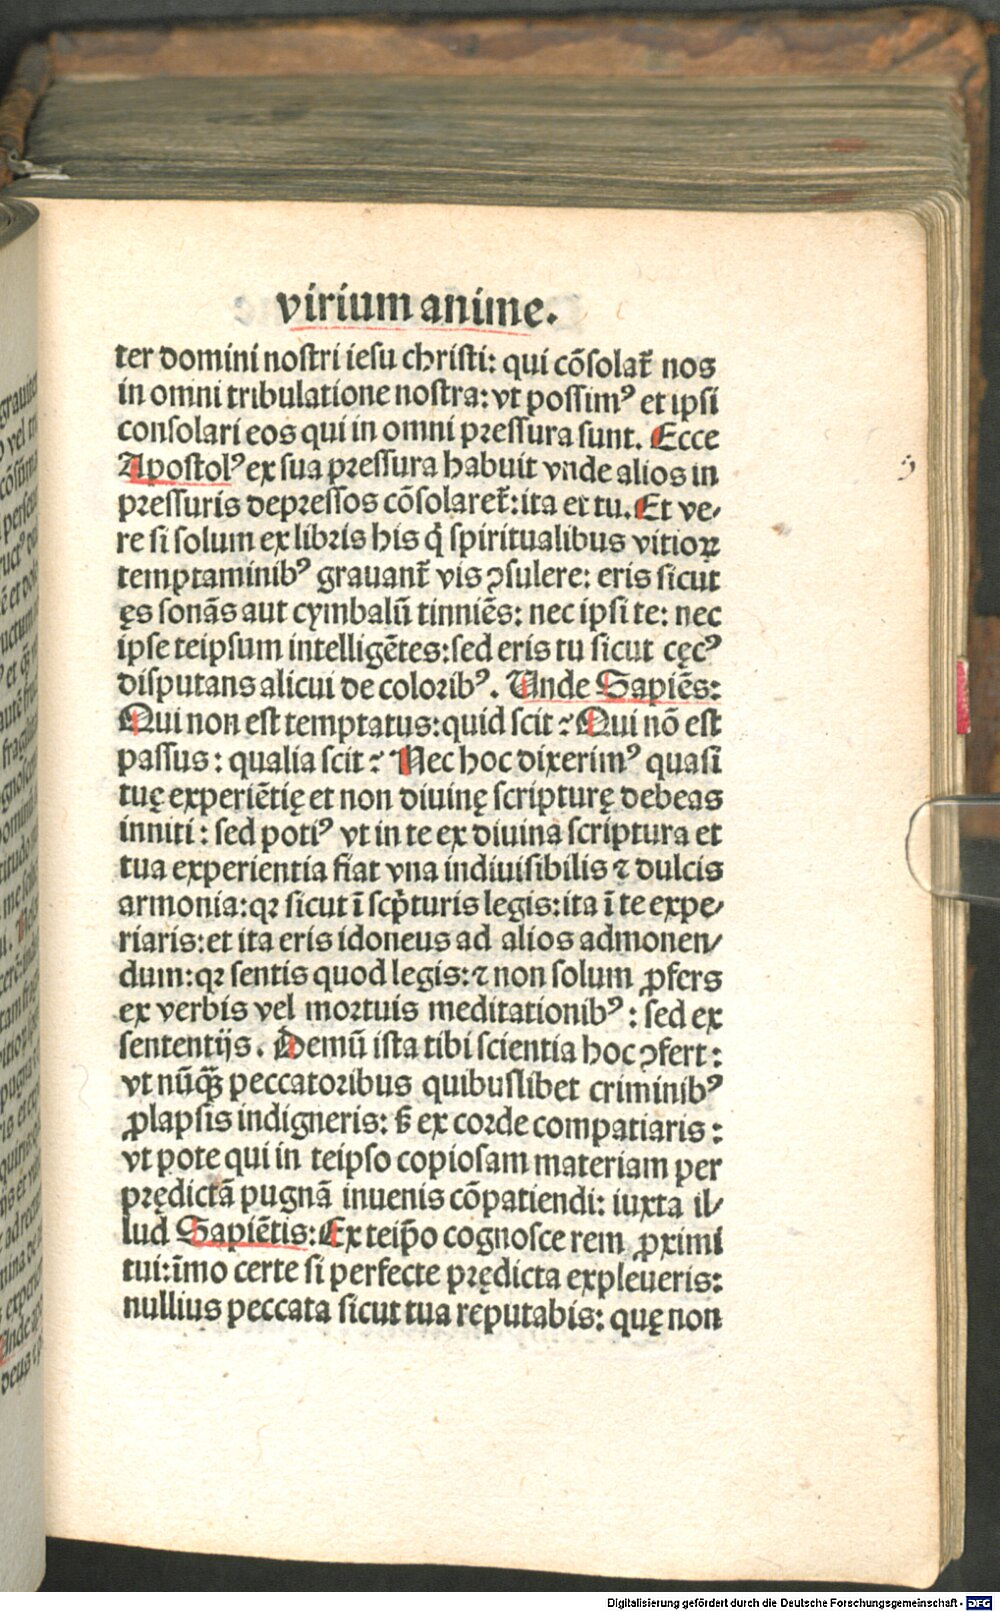 virium anime.
ter domini nostri iesu christi: qui cõsolat̃ nos
in omni tribulatione nostra: vt possimꝰ et ipsi
consolari eos qui in omni pressura sunt. Ecce
Apostolꝰ ex sua pressura habuit vnde alios in
pressuris depressos cõsolaret̃: ita et tu. Et ve⸗
re si solum ex libris his q̃ spiritualibus vitioꝝ
temptaminibꝰ grauant̃ vis ꝯsulere: eris sicut
ęs sonãs aut cymbalũ tinniẽs: nec ipsi te: nec
ipse teipsum intelligẽtes: sed eris tu sicut cęcꝰ
disputans alicui de coloribꝰ. Unde Sapiẽs:
Qui non est temptatus: quid scit? Qui nõ est
passus: qualia scit? Nec hoc dixerimꝰ quasi
tuę experiẽtię et non diuinę scripturę debeas
inniti: sed potiꝰ vt in te ex diuina scriptura et
tua experientia fiat vna indiuisibilis ⁊ dulcis
armonia: qꝛ sicut ĩ scp̃turis legis: ita ĩ te expe⸗
riaris: et ita eris idoneus ad alios admonen⸗
dum: qꝛ sentis quod legis: ⁊ non solum ꝓfers
ex verbis vel mortuis meditationibꝰ: sed ex
sententijs. Demũ ista tibi scientia hoc ꝯfert:
vt nũqꝫ̃ peccatoribus quibuslibet criminibꝰ
ꝓlapsis indigneris: s̃ ex corde compatiaris:
vt pote qui in teipso copiosam materiam per
prędictã pugnã inuenis cõpatiendi: iuxta il⸗
lud Sapiẽtis: Ex teip̃o cognosce rem ꝓximi
tui: ĩmo certe si perfecte prędicta expleueris:
nullius peccata sicut tua reputabis: quę non
Digitalisierung gefördert durch die Deutsche Forschungsgemeinschaft - DFG